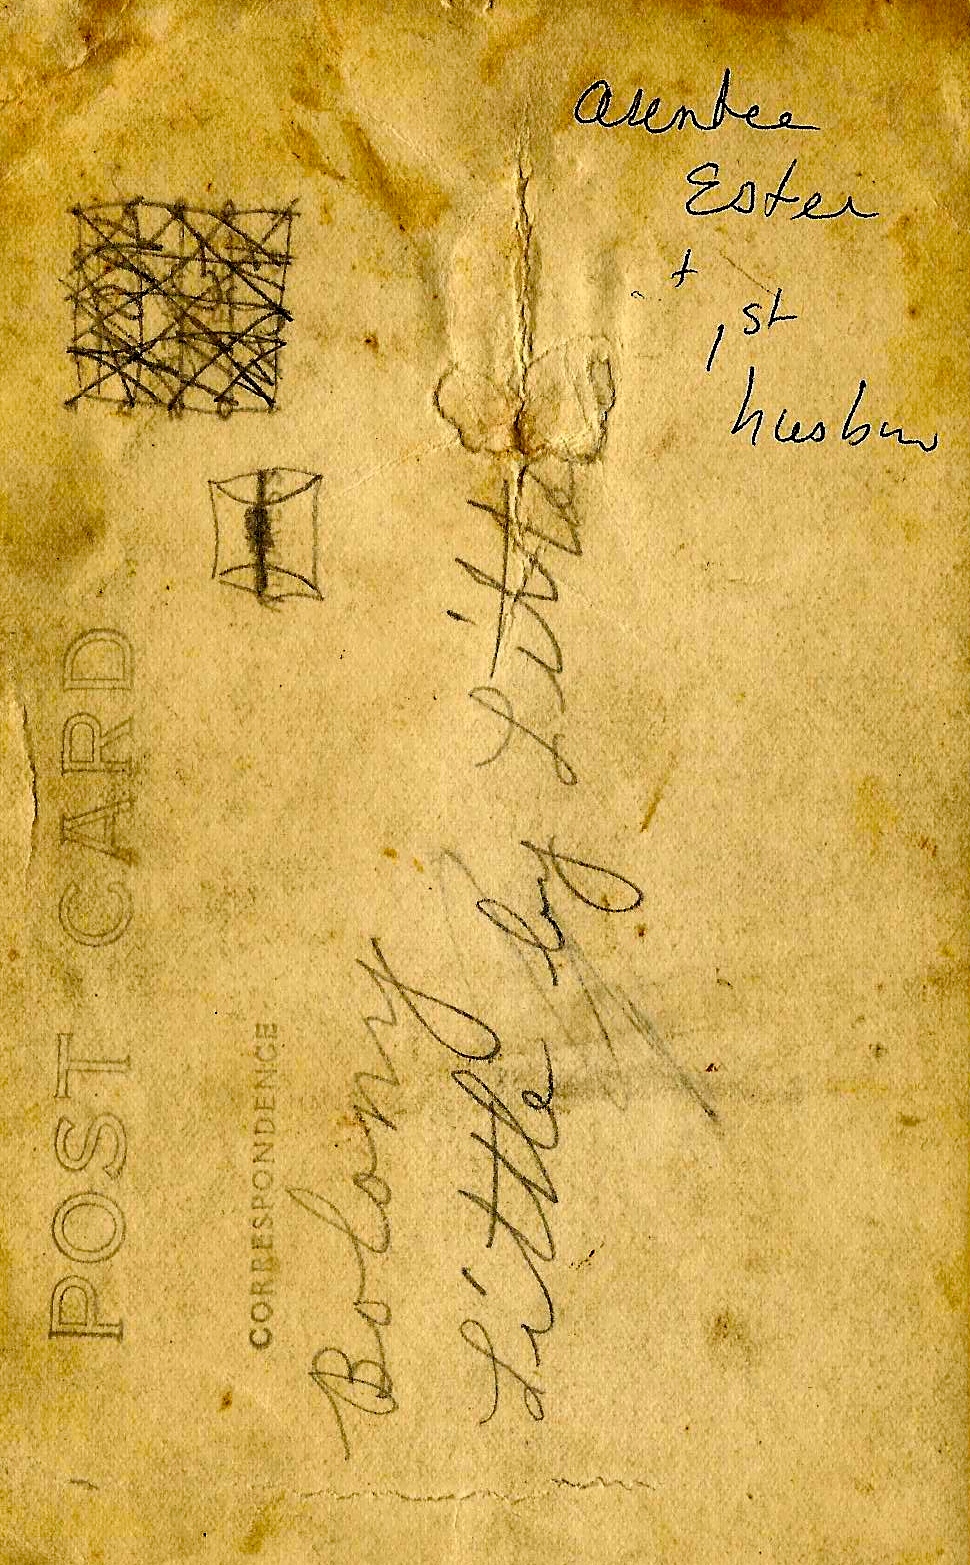 Ester
+
1st
husban
POST CARD
CORRESPONDENCE
Bolony
Little by Little